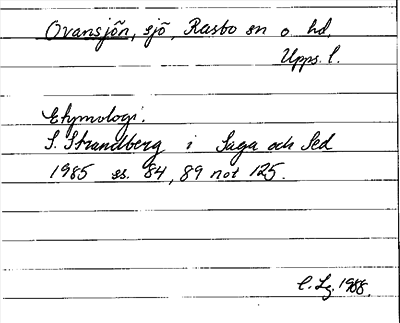 Ovansjön, sjö, Rasbo sn o. hd,
Upps. l.
Etymologi.
S. Strandberg i Saga och Sed
1985 ss. 84, 89 not 125.
C. Lg. 1988.